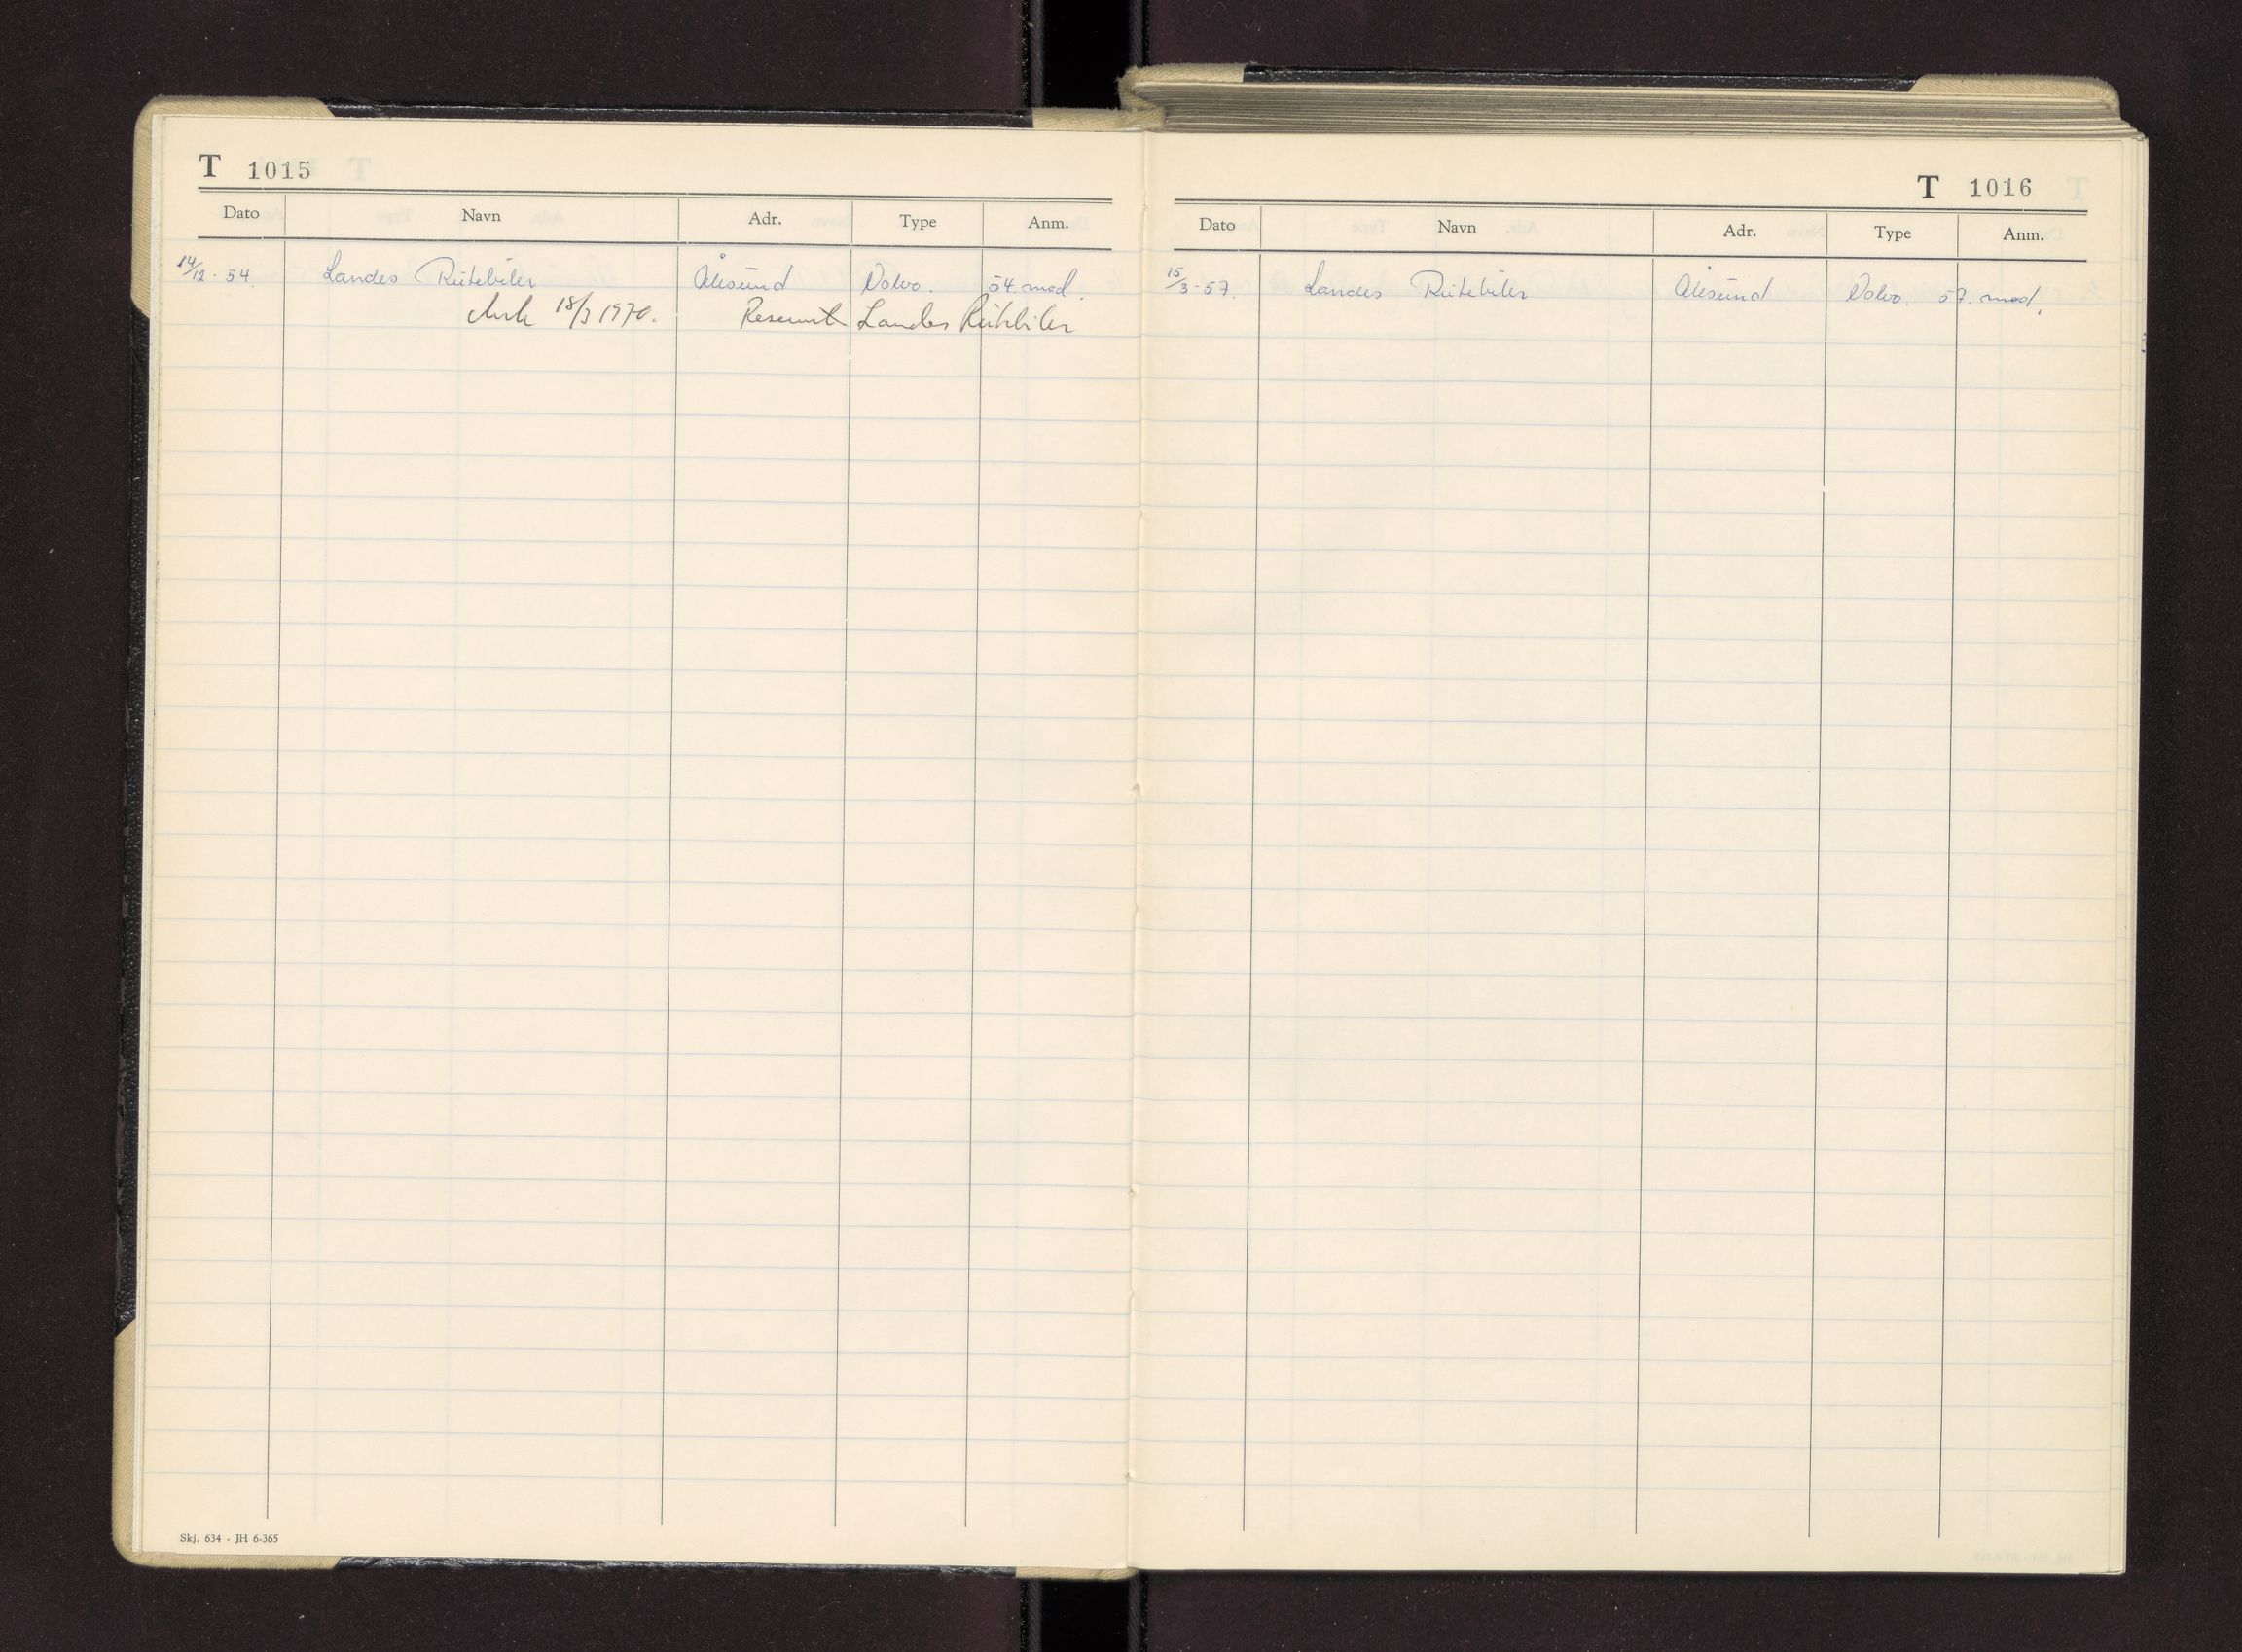 T 1015
Dato Navn Adr. Type Anm.
14/12-54. Landes Rutebiler Ålesund Volvo. 54. mod.
18/3 1970. Reservert Landes Rutebiler
Skj. 634 - JH 6-365
T 1016
Dato Navn Adr. Type Anm.
15/3-57. Landes Rutebiler Ålesund Volvo. 57. mod.